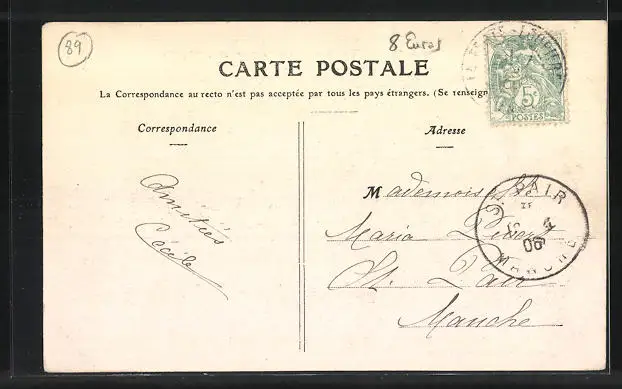 89
8 Euros
CARTE POSTALE
La Correspondance au recto n'est pas acceptée par tous les pays étrangers. (Se renseign
Correspondance
Adresse
5c
POSTES
Amitiés
Cécile
Mademoiselle
Maria
St. Pair
Manche
ST PAIR
06
MANCHE